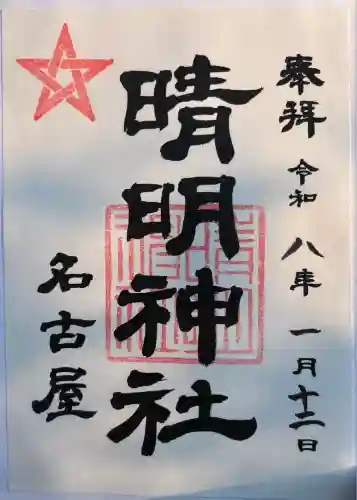 奉拜 令和八年 一月十二日
晴明神社
名古屋